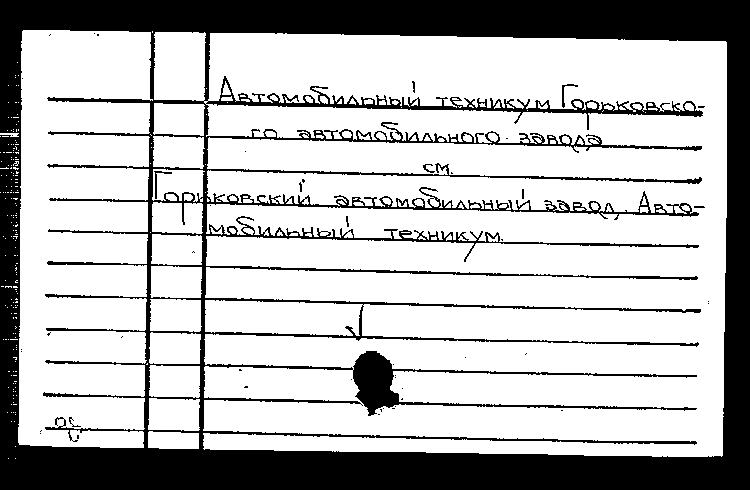 Автомобильный техникум Горьковско-
го автомобильного завода
см.
Горьковский автомобильный завод. Авто-
мобильный техникум.